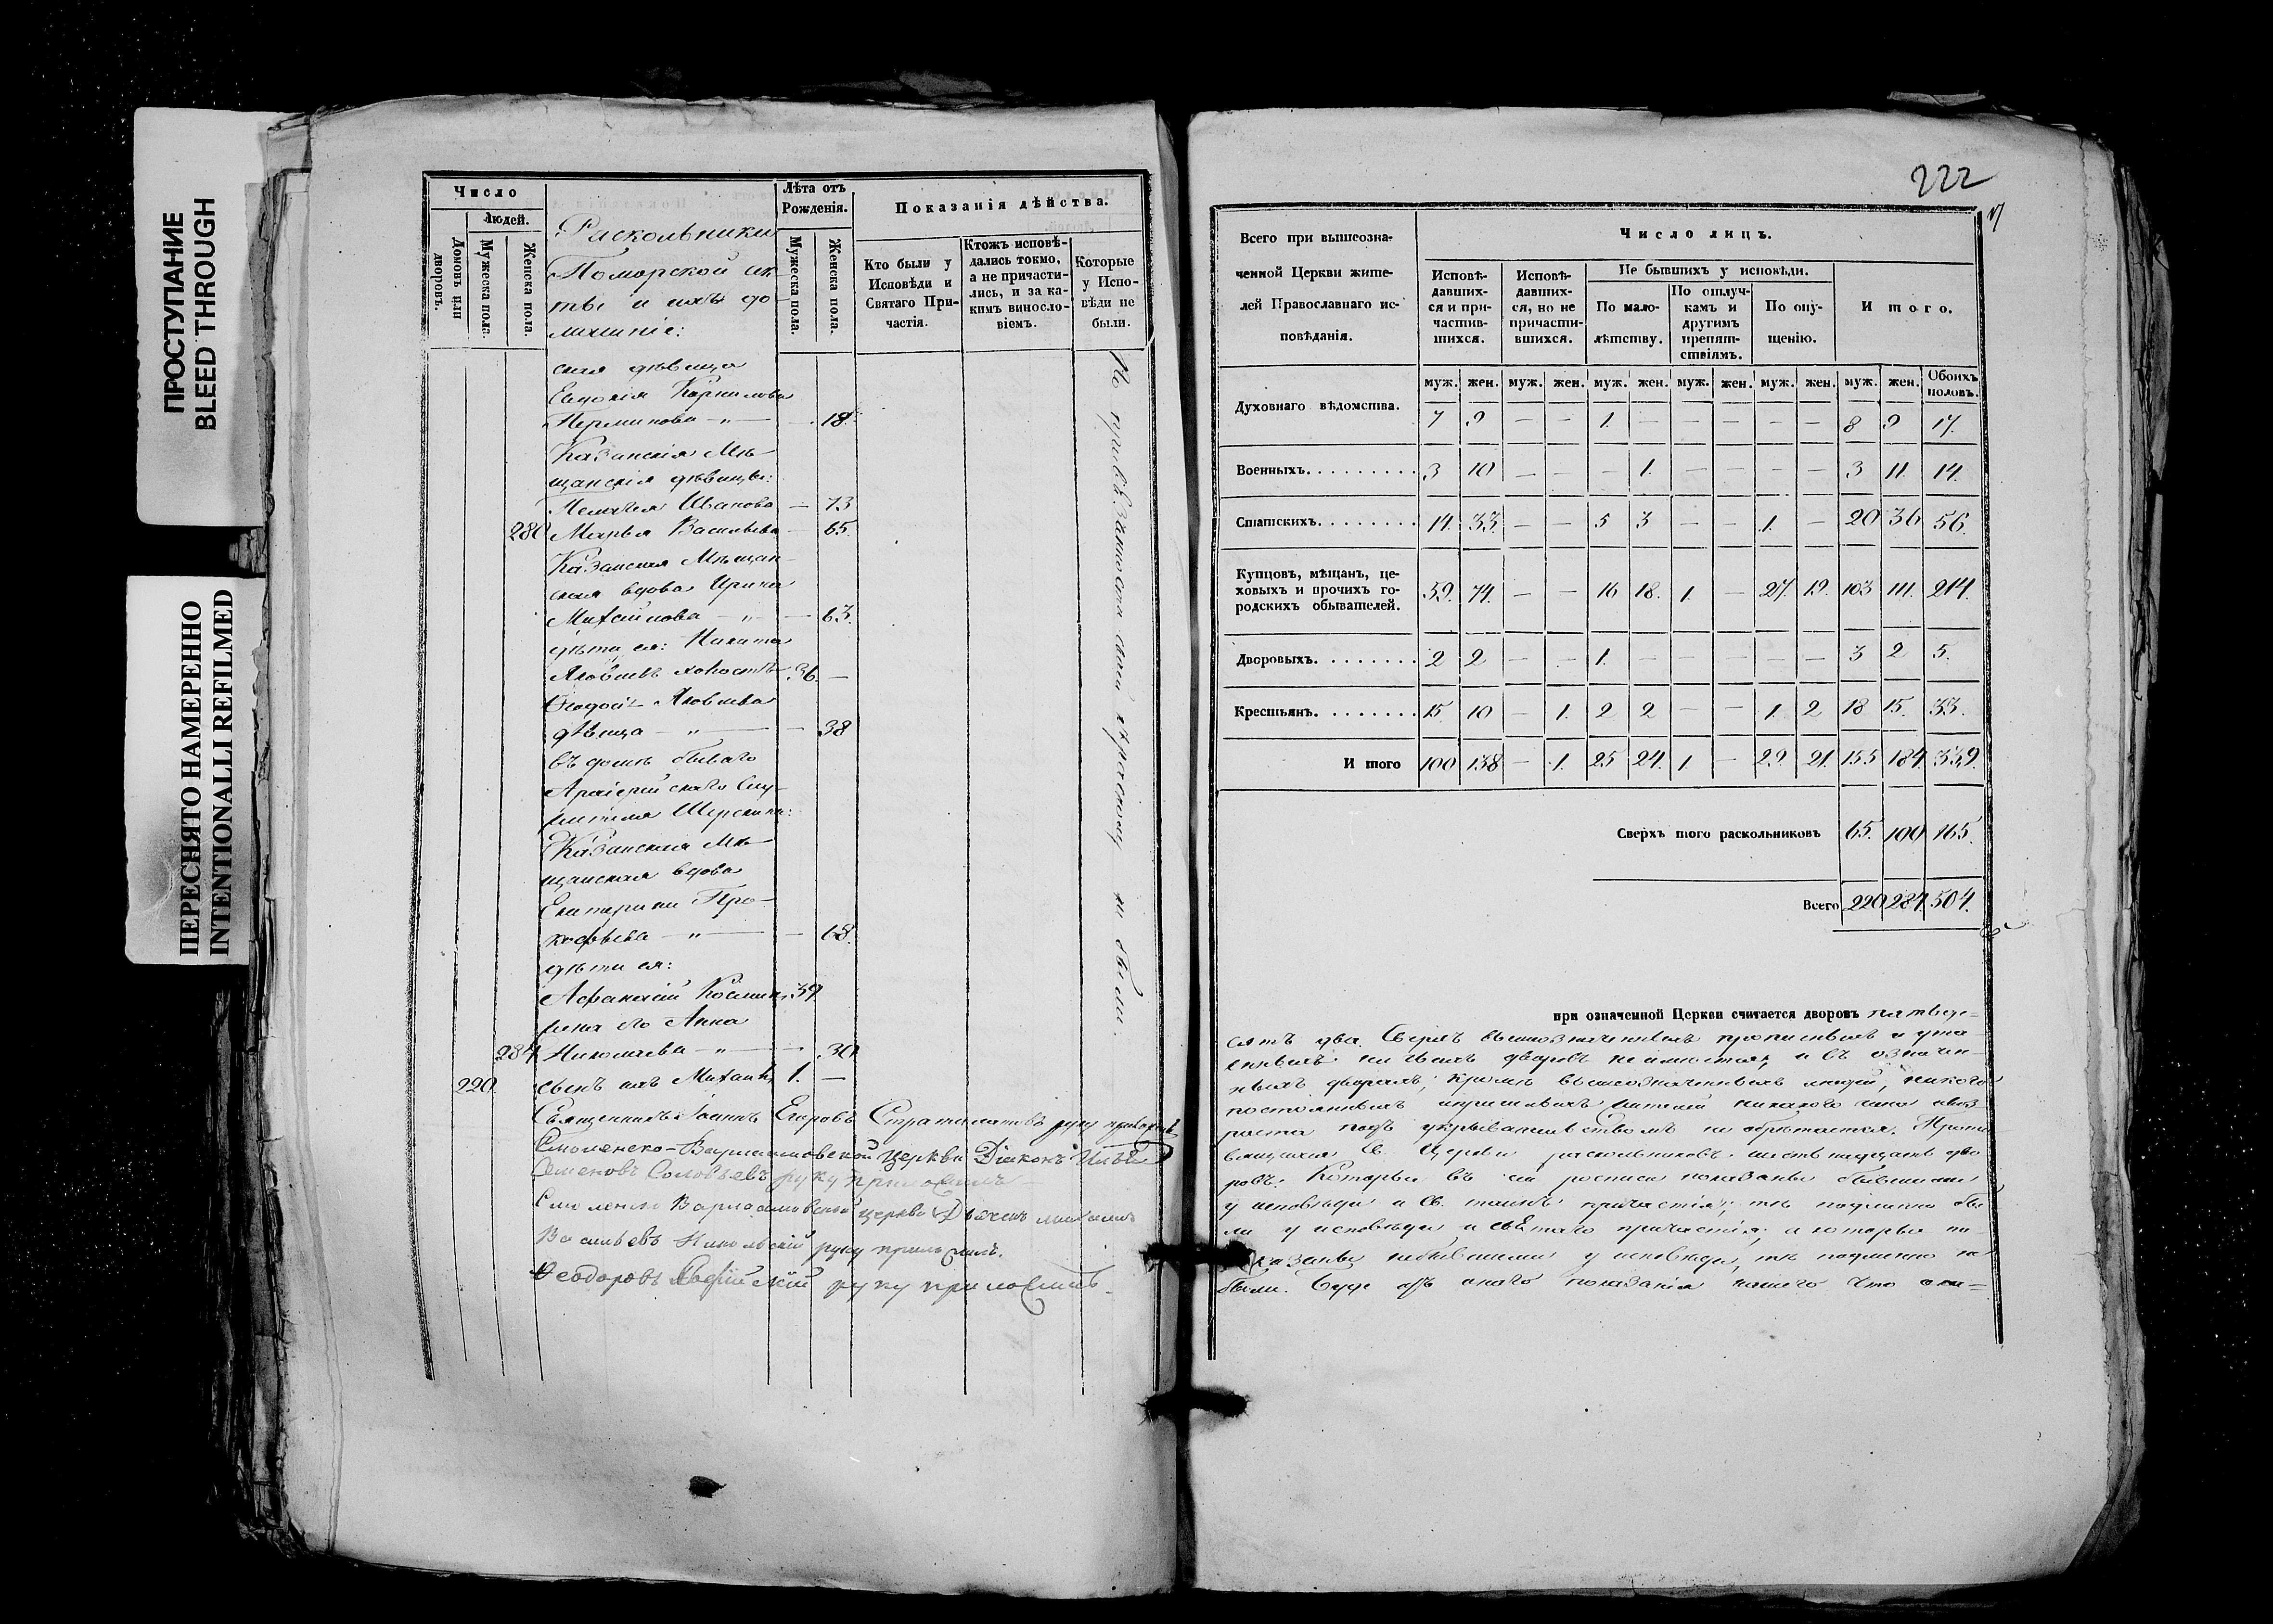 ПРОСТУПАНИЕ
BLEED THROUGH
ПЕРЕСНЯТО НАМЕРЕННО
INTENTIONALLI REFILMED
Число
Людей.
Домовъ или дворовъ.
Мужеска пола.
Женска пола.
Раскольники
Поморской сек
ты и ихъ до
машніе:
Лѣта отъ
Рожденія.
Мужеска пола.
Женска пола.
Показанія дѣйства.
Кто были у
Исповѣди и
Святаго При-
частія.
Ктожъ исповѣ-
дались токмо,
а не причасти-
лись, и за ка-
кимъ винносло-
віемъ.
Которые
у Испо-
вѣди не
были.
ская дѣвица
Евдокія Корнилова
18
Казанскія Мѣ
щанскія дѣвицы:
Иванова — 73
280 Марья Васильева — 65.
Казанская Мѣщан-
ская вдова Ирина
Михайлова — „ — 63.
дѣти ея: Никита
Яковлевъ холостъ 36. —
Яковлева
дѣвица — „ — 38
въ домѣ бывшаго
Казанская Мѣ-
щанская вдова
Екатерина Про-
кофьева — „ — 68.
дѣти ея:
Афанасій 39
жена его Анна
284 Николаева — „ — 30.
220. сынъ ихъ Михаилъ 1. —
по привязанности къ расколу не были.
Священникъ Іоаннъ Егоровъ Стратилатовъ руку приложилъ
Смоленско-Варлаамовской церкви Діаконъ
Семеновъ Соловьевъ руку приложилъ
Васильевъ Никольскій руку приложилъ.
Ѳеодоровъ руку приложилъ.
222
Всего при вышеозна-
ченной Церкви жите-
лей Православнаго ис-
повѣданія.
Число лицъ.
Исповѣ-
давших-
ся и при-
частив-
шихся.
Исповѣ-
давших-
ся, но не
причасти-
вшихся.
Не бывшихъ у исповѣди.
По мало-
лѣтству.
По отлуч-
камъ и
другимъ
препят-
ствіямъ.
По опу-
щенію.
И того.
муж. жен. муж. жен. муж. жен. муж. жен. муж. жен. муж. жен. Обоихъ половъ.
Духовнаго вѣдомства. 7 9 — — 1. — — — — — 8 9 17.
Военныхъ. 3 10 — — — 1. — — — — 3 11. 14.
Статскихъ. 14. 33. — — 5 3 — — 1. — 20 36 56.
Купцовъ, мѣщанъ, це-
ховыхъ и прочихъ го-
родскихъ обывателей. 59. 74. — — 16 18. 1. — 27. 19. 103 111. 214.
Дворовыхъ. 2 2 — — 1. — — — — — 3 2 5.
Крестьянъ. 15. 10 — 1. 2 2 — — 1. 2 18 15. 33.
И того 100 138 — 1. 25 24. 1 — 29. 21. 155 184. 339.
Сверхъ того раскольниковъ 65. 100 165.
Всего 220 284. 504.
при означенной Церкви считается дворовъ пятьде-
сятъ два. Сверхъ вышеозначенныхъ прописныхъ и ута
енныхъ дворовъ не имѣется, и въ означен-
ныхъ дворахъ, кромѣ вышеозначенныхъ людей, никого
постоянныхъ жителей никакого чина и воз-
раста подъ укрывательствомъ не обрѣтается. Проти
вящихся Св. Церкви раскольниковъ шестьнадцать дво
ровъ. Которые въ сей росписи показаны бывшими
у исповѣди и Св. таинъ причастія; тѣ подлинно бы
ли у исповѣди и святаго причастія; а которые по-
казаны небывшими у исповѣди, тѣ подлинно не
были. Буде изъ онаго показанія нашего что ока=